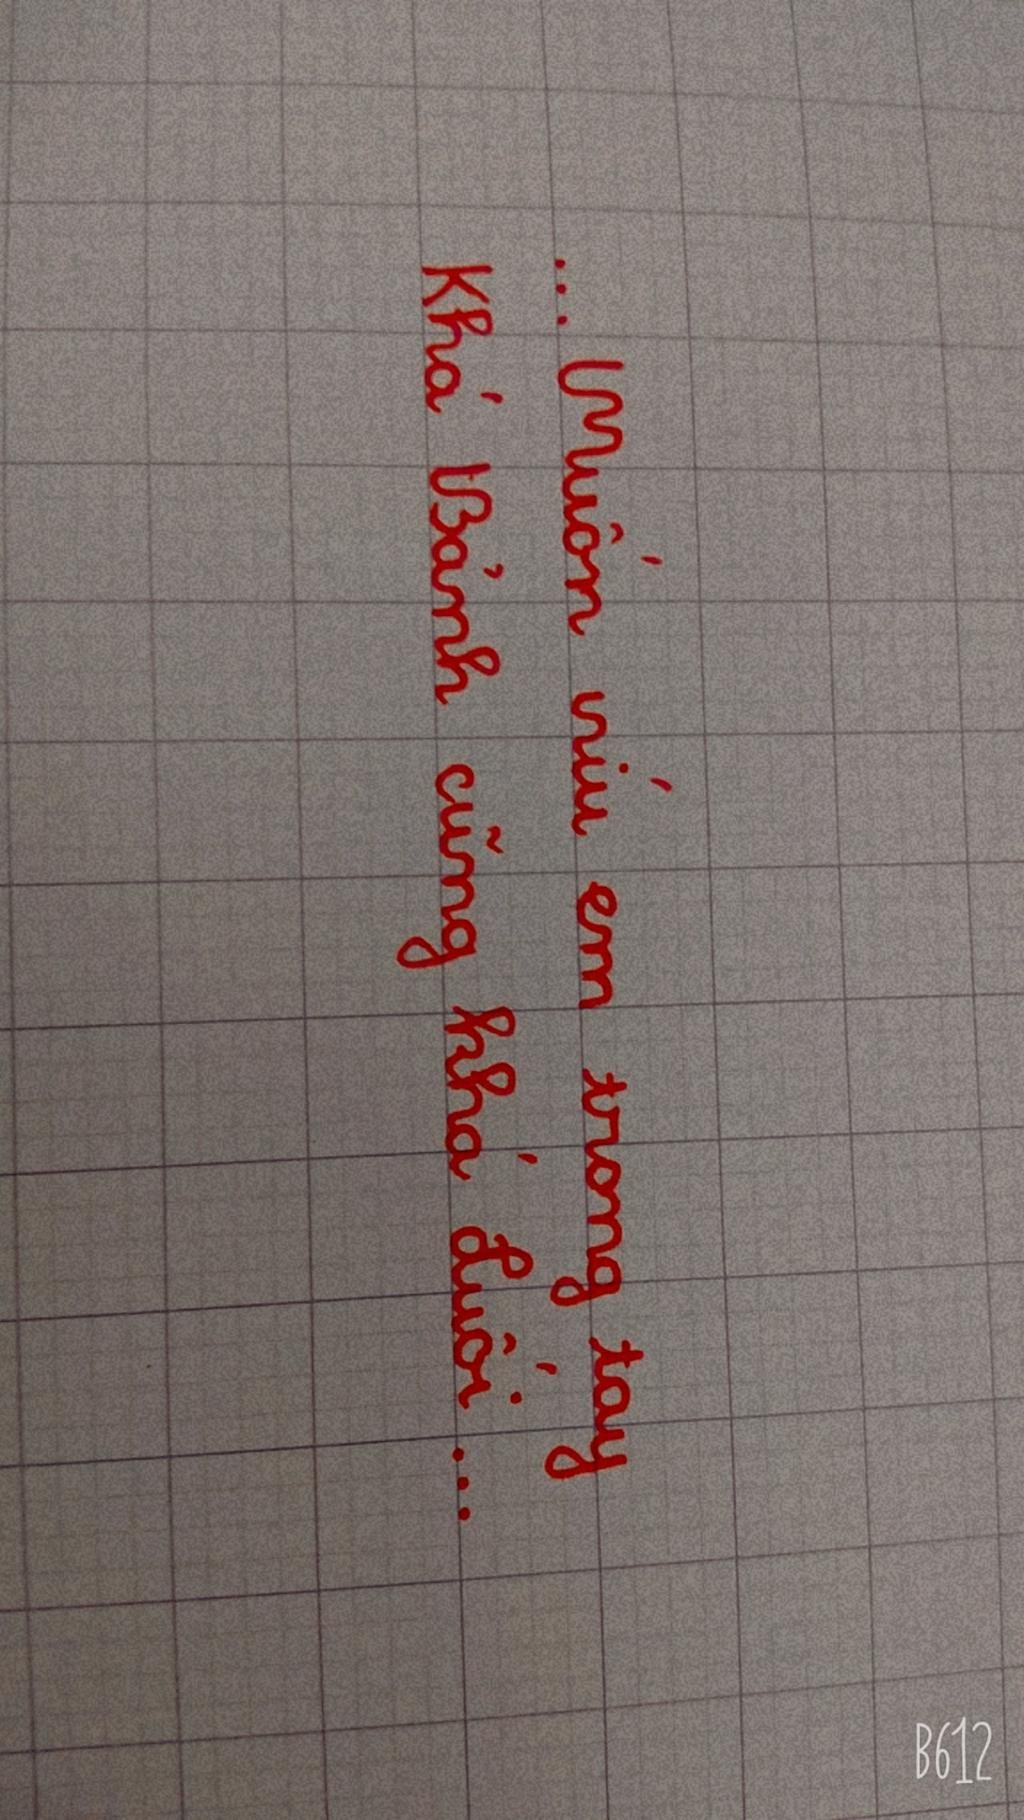 ... Muốn níu em trong tay
Khá Bảnh cũng khá đuối ...
B612